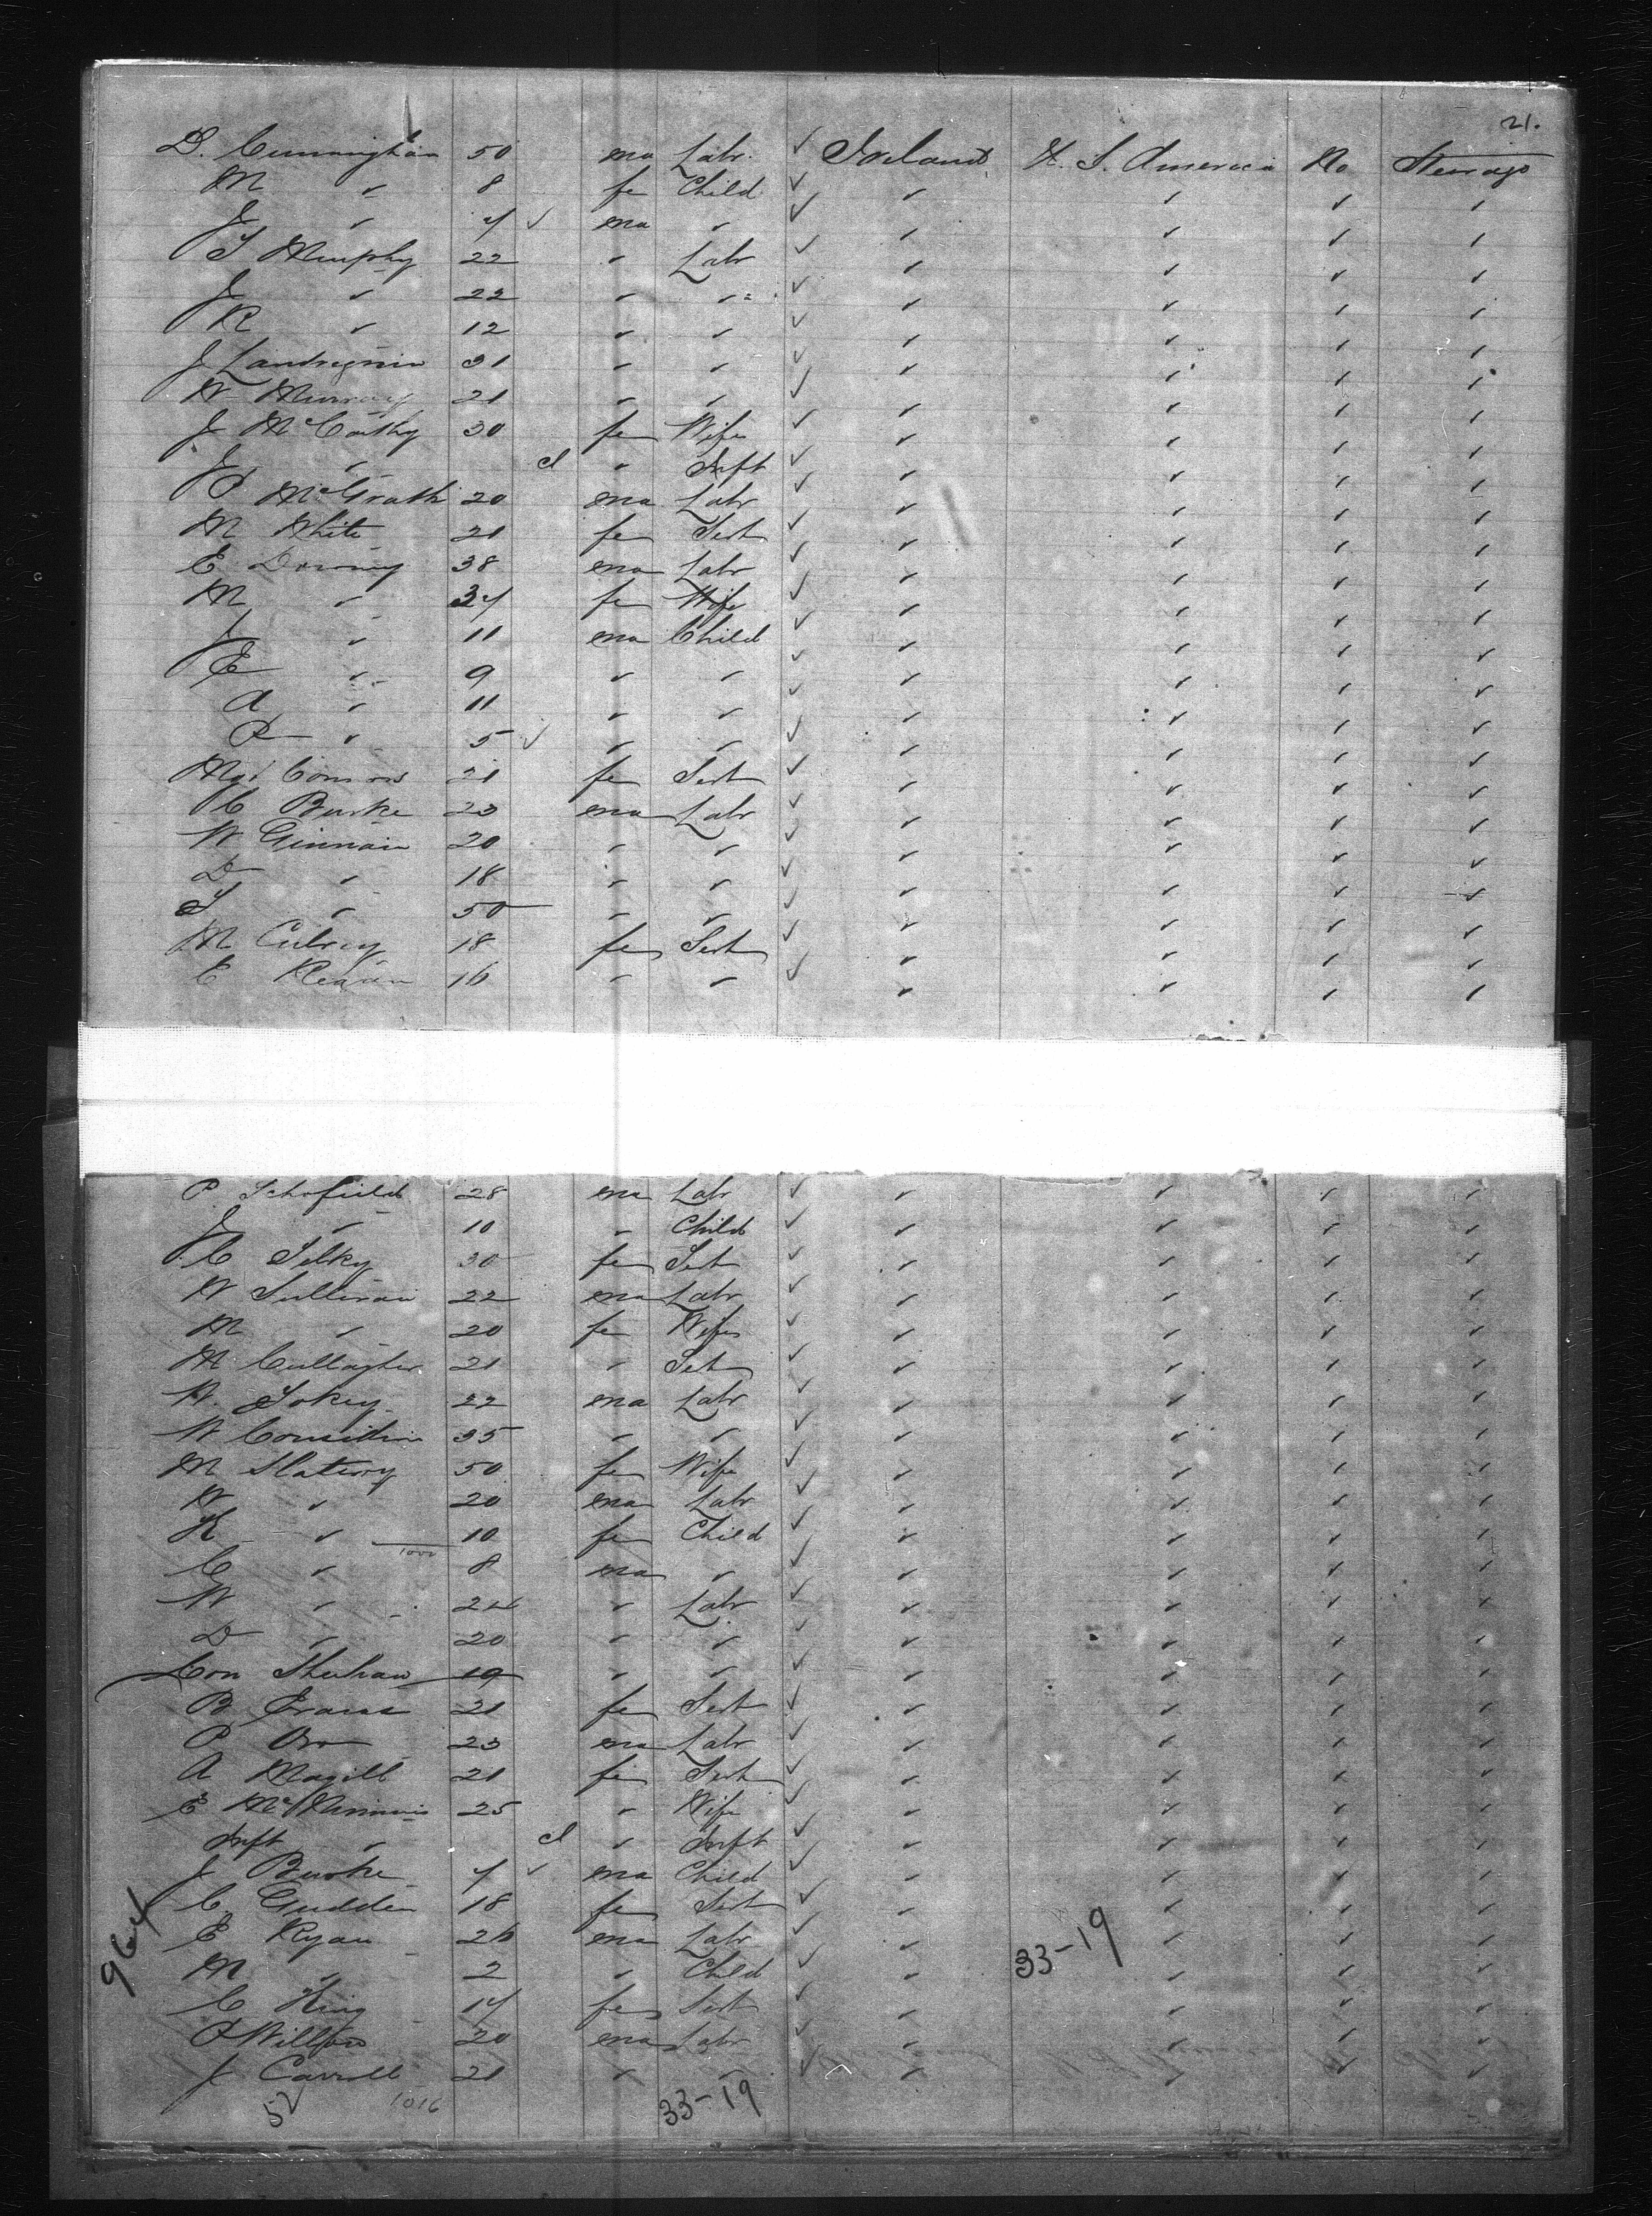 21.
D. Cunningham 50 ma Labr. ✓ Ireland U. S. America No Steerage
M " 8 fe Child ✓ " " " "
J " 4 ✓ ma " ✓ " " " "
T Murphy 22 " Labr ✓ " " " "
J " 22 " " ✓ " " " "
R " 12 " " ✓ " " " "
J Landregnin 31 " " ✓ " " " "
W Murray 21 " " ✓ " " " "
J McCarthy 30 fe Wife ✓ " " " "
J " " Inft ✓ " " " "
P McGrath 20 ma Labr ✓ " " " "
M White 21 fe Sert ✓ " " " "
E Downy 38 ma Labr ✓ " " " "
M " 34 fe Wife ✓ " " " "
J " 11 ma Child ✓ " " " "
E " 9 " " ✓ " " " "
A " 11 " " ✓ " " " "
P " 5 ✓ " " ✓ " " " "
Mgt Connors 21 fe Sert ✓ " " " "
C Burke 23 ma Labr ✓ " " " "
W Ginnain 20 " " ✓ " " " "
D " 18 " " ✓ " " " "
T " 50 " " ✓ " " " "
M 18 fe Sert ✓ " " " "
C Regan 16 " " ✓ " " " "
P Schofield 28 ma Labr ✓ " " " "
J " 10 " Child ✓ " " " "
C Silky 30 fe Sert ✓ " " " "
W Sullivan 22 ma Labr ✓ " " " "
M " 20 fe Wife ✓ " " " "
M Cullagher 21 " Sert ✓ " " " "
H. Tokey 22 ma Labr ✓ " " " "
W Considin 35 " " ✓ " " " "
M Slatery 50 fe Wife ✓ " " " "
W " 20 ma Labr ✓ " " " "
K " 10 fe Child ✓ " " " "
1000
C " 8 ma " ✓ " " " "
W " 24 " Labr ✓ " " " "
D " 20 " " ✓ " " " "
Con Sheehan 19 " " ✓ " " " "
B Evans 21 fe Sert ✓ " " " "
P Orr 23 ma Labr ✓ " " " "
A Magill 21 fe Sert ✓ " " " "
E 25 " Wife ✓ " " " "
Inft " " Inft ✓ " " " "
J Burke 4 ✓ ma Child ✓ " " " "
C Gudden 18 fe Sert ✓ " " " "
E Ryan 26 ma Labr ✓ " " " "
M " 2 " Child ✓ " " " "
C King 14 fe Sert ✓ " " " "
P Willson 20 ma Labr ✓ " " " "
J Carroll 21 " " ✓ " " " "
964
33-19
52 1016 33-19